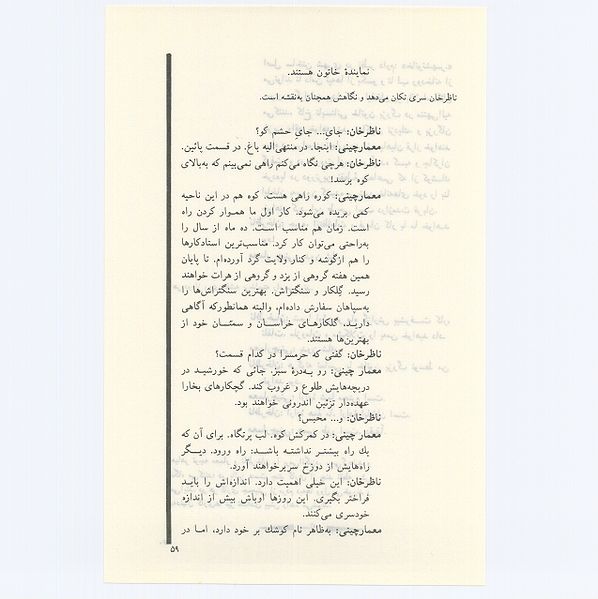 نمایندهٔ خاتون هستند.
ناظرخان سری تکان می‌دهد و نگاهش همچنان به‌نقشه است.
ناظرخان: جای... جای حشم کو؟
معمارچینی: اینجا. در منتهی‌الیه باغ. در قسمت پائین.
ناظرخان: هرچی نگاه می‌کنم راهی نمی‌بینم که به‌بالای
کوه برسد!
معمارچینی: کوره راهی هست. کوه هم در این ناحیه
کمی بریده می‌شود. کار اول ما همـوار کردن راه
است. زمان هم مناسب اسـت. ده ماه از سال را
به‌راحتی می‌توان کار کرد. مناسب‌ترین استادکارها
را هم ازگوشه و کنار ولایت گرد آورده‌ام. تا پایان
همین هفته گروهی از یزد و گروهی از هرات خواهند
رسید. گلکار و سنگتراش. بهترین سنگتراش‌ها را
به‌سپاهان سفارش داده‌ام، والبته همانطورکه آگاهی
داریـد. گلکارهـای خراسـان و سمنـان خود از
بهترین‌ها هستند.
ناظرخان: گفتی که حرمسرا در کدام قسمت؟
معمار چینی: رو به‌درهٔ سبز. جائی که خورشیـد در
دریچه‌هایش طلوع و غروب کند. گچکارهای بخارا
عهده‌دار تزئین اندرونی خواهند بود.
ناظرخان: و... محبس؟
معمار چینی: در کمرکش کوه. لب پرتگاه. برای آن که
یك راه بیشتـر نداشتـه باشـد: راه ورود. دیـگر
راه‌هایش از دوزخ سربرخواهند آورد.
ناظرخان: این خیلی اهمیت دارد. اندازه‌اش را بایـد
فراختر بگیری. این روزها اوباش بیش از اندازه
خودسری می‌کنند.
معمارچینی: به‌ظاهر نام کوشك بر خود دارد، امـا در
۵۹